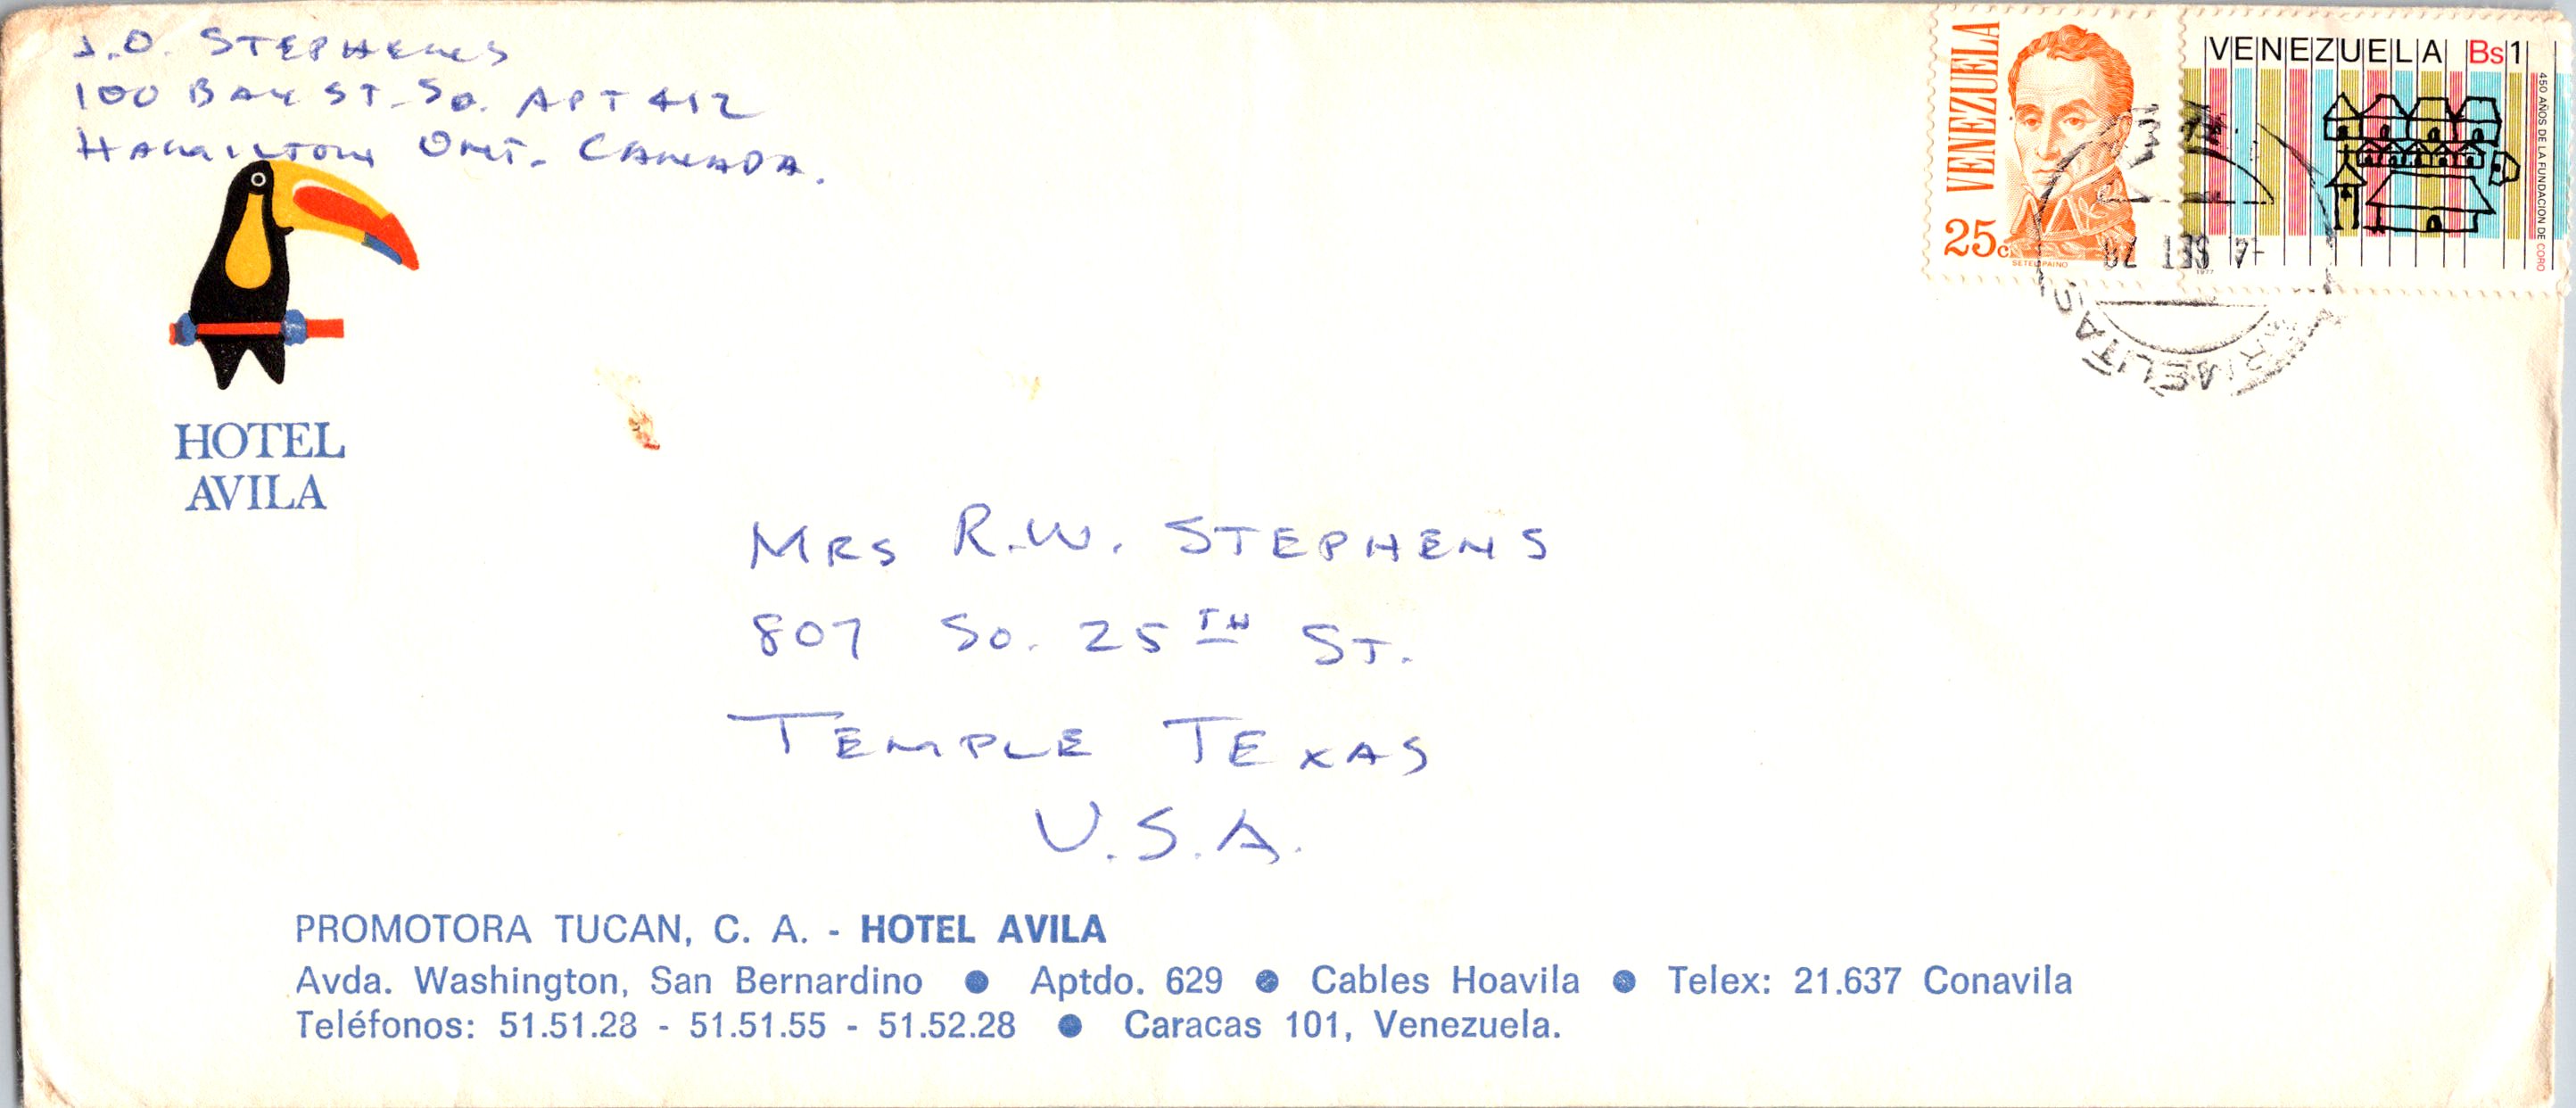 J.O. STEPHENS
100 BAY ST. SO. APT 412
HAMILTON ONT. CANADA.
HOTEL
AVILA
VENEZUELA
25c
SETELIPAINO
VENEZUELA Bs 1
450 AÑOS DE LA FUNDACION DE CORO
1977
MRS R.W. STEPHENS
807 SO. 25TH ST.
TEMPLE TEXAS
U.S.A.
PROMOTORA TUCAN, C. A. - HOTEL AVILA
Avda. Washington, San Bernardino ● Aptdo. 629 ● Cables Hoavila ● Telex: 21.637 Conavila
Teléfonos: 51.51.28 - 51.51.55 - 51.52.28 ● Caracas 101, Venezuela.